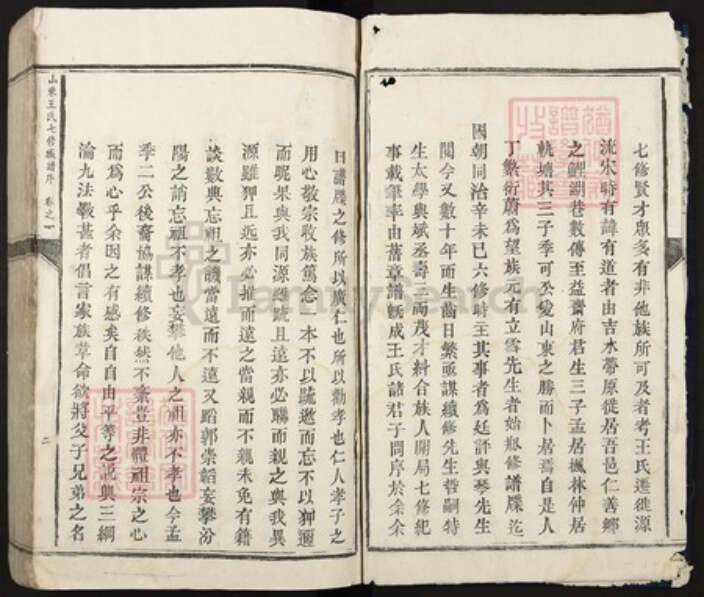 七修賢才眾多有非他族所可及者考王氏遷徙源
流宋時有諱有道者由吉水帶原徙居吾邑仁善鄉
之鯉湖巷數傳至益齋府君生三子孟居楓林仲居
軌塘其三子季可公愛山東之勝而卜居焉自是人
丁繁衍蔚為望族元有立雪先生者始刱修譜牒迄
國朝同治辛未已六修時主其事者為廷評與琴先生
閱今又數十年而生齒日繁亟謀續修先生哲嗣特
生太學與斌丞壽三兩茂才糾合族人開局七修紀
事載筆率由舊章譜旣成王氏諸君子問序於余余
曰譜牒之修所以廣仁也所以勸孝也仁人孝子之
用心敬宗收族篤念一本不以疏逖而忘不以狎邇
而昵果與我同源雖疏且遠亦必聯而親之與我異
源雖狎且近亦必推而遠之當親而不親未免有籍
談數典忘祖之譏當遠而不遠又蹈郭崇韜妄攀汾
陽之誚忘祖不孝也妄攀他人之祖亦不孝也今孟
季二公後裔協謀續修秩然不紊豈非體祖宗之心
而為心乎余因之有感矣自自由平等之說興三綱
淪九法斁甚者倡言家族革命欲將父子兄弟之名
山東王氏七修族譜序 卷之一
二
FamilySearch